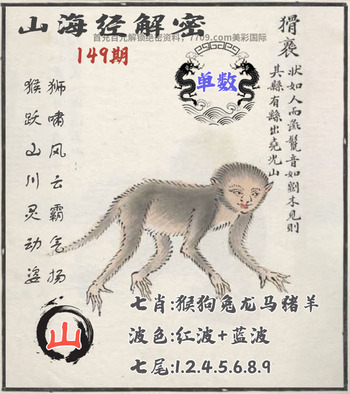 山海经解密
首充百元解锁绝密资料，7709.com美彩国际
149期
单数
猾褢
状如人而彘鬣音如斲木见则
其县有繇出尧光山
狮啸风云霸气扬
猴跃山川灵动姿
山
七肖:猴狗兔龙马猪羊
波色:红波+蓝波
七尾:1.2.4.5.6.8.9